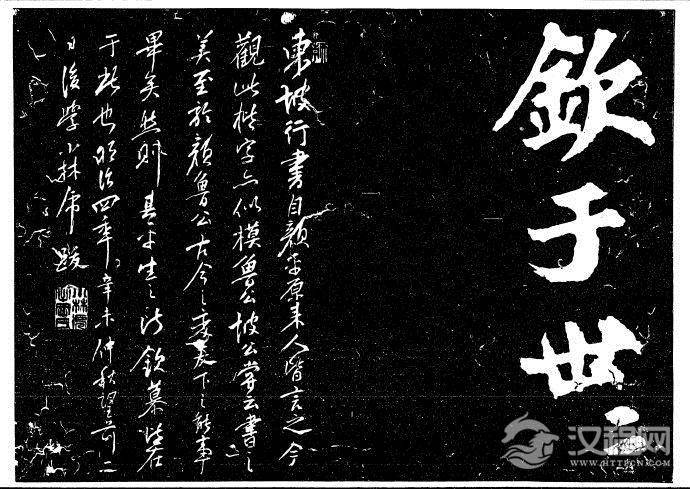 欽于世
東坡行書自顏平原来人皆言之今
觀此楷字亦似模魯公坡公嘗云書之
美至於顏魯公古今之變天下之能事
畢矣然則其平生之所欽慕在
于此也明治四年辛未仲秋望前二
日後學小林跋
汉程网
WWW.HTTPCN.COM